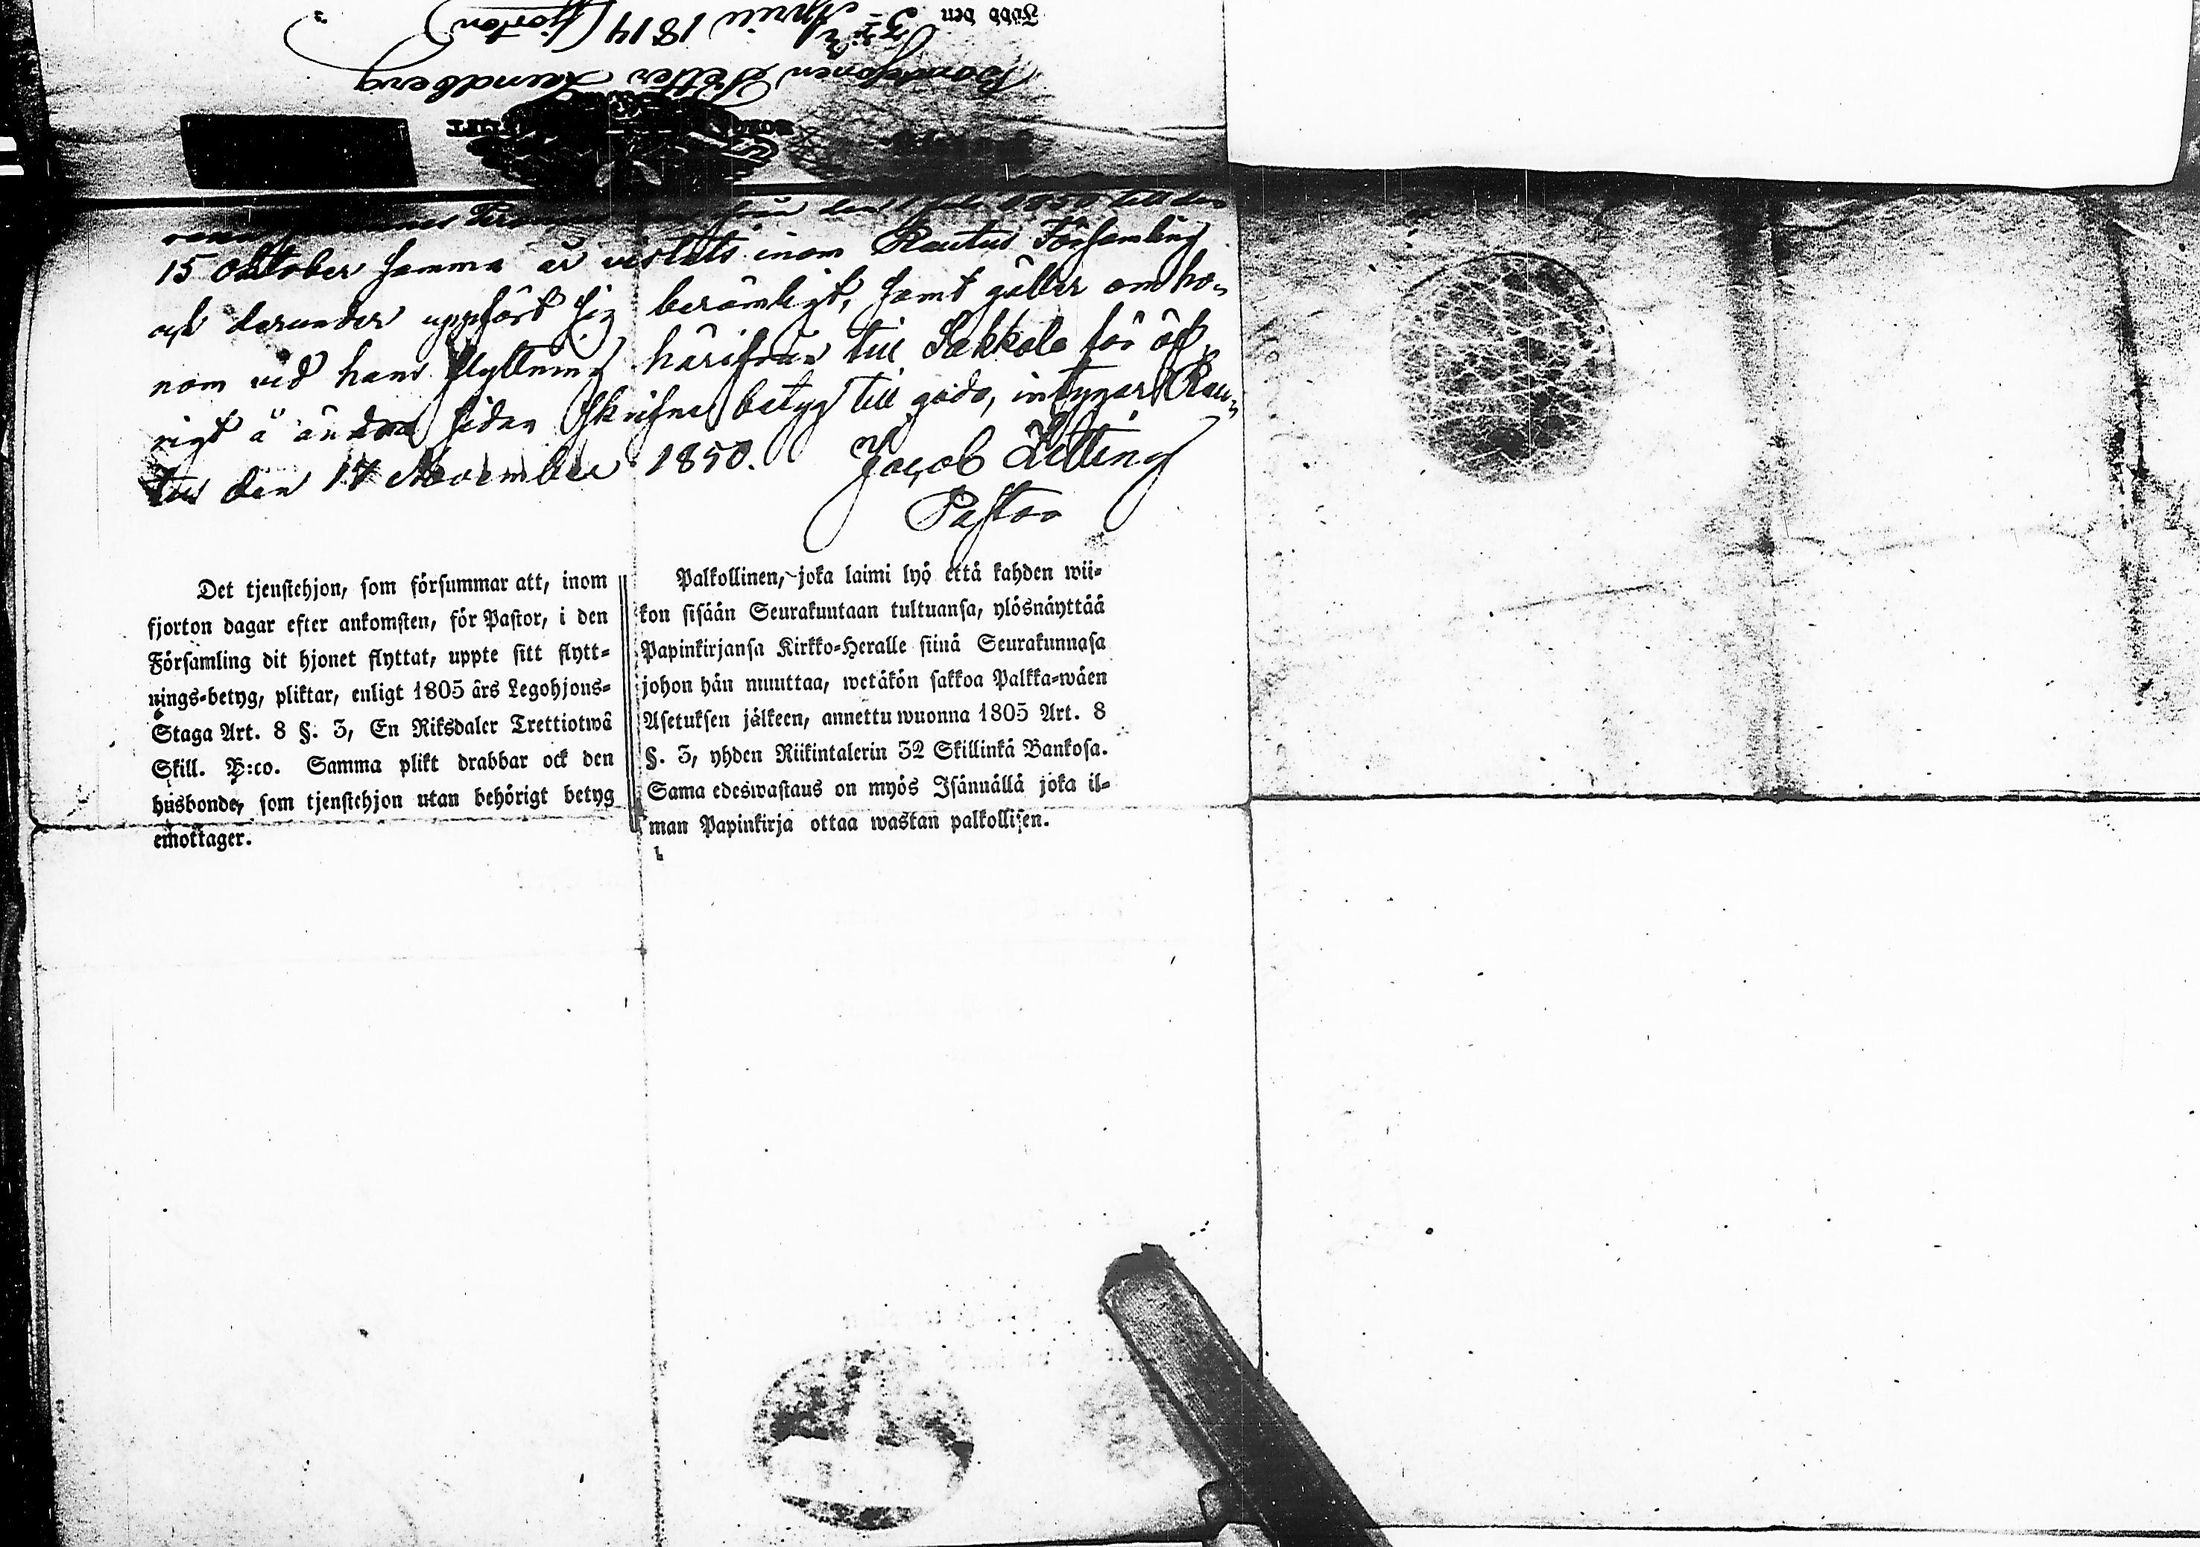 Född den 3 April 1814 (fjorton)
Petter Lundberg
den 1850 till den
15 Oktober samma år vistats inom Rautus Församling
och derunder uppfört sig berömligt, samt gäller om ho-
nom vid hans flyttning härifrån till Sakkola för öf-
rigt å andra sidan skrifne betyg till godo, intygar Rau-
tus den 17 November 1850. Jacob Zitting
Pastor
Det tjenstehjon, som försummar att, inom
fjorton dagar efter ankomsten, för Pastor, i den
Församling dit hjonet flyttat, uppte sitt flytt-
nings-betyg, pliktar, enligt 1805 års Legohjons-
Staga Art. 8 §. 3, En Riksdaler Trettiotwå
Skill. B:co. Samma plikt drabbar ock den
husbonde, som tjenstehjon utan behörigt betyg
emottager.
Palkollinen, joka laimi lyö että kahden wii-
kon sisään Seurakuntaan tultuansa, ylösnäyttää
Papinkirjansa Kirkko-Heralle siinä Seurakunnasa
johon hän muuttaa, wetäkön sakkoa Palkka-wäen
Asetuksen jälkeen, annettu wuonna 1805 Art. 8
§. 3, yhden Riikintalerin 32 Skillinkä Bankosa.
Sama edeswastaus on myös Isännällä joka il-
man Papinkirja ottaa wastan palkollisen.